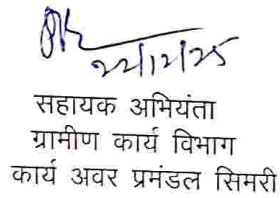 सहायक अभियंता
ग्रामीण कार्य विभाग
कार्य अवर प्रमंडल सिमरी